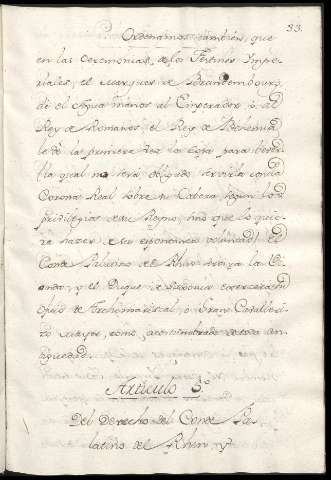 33.
Ordenamos tambien, que
en las ceremonias, de los Festines Impe-
riales, el Marques de Brandembourg
dé el Agua manos al Emperador, ó al
Rey de Romanos; el Rey de Bohemia
le dé la primera vez la Copa para beber
(la qual no sera obligado servirla con la
Corona Real sobre su Cabeza, segun los
privilegios de su Reyno, sino que lo quie-
re hazer de su espontanea voluntad) el
Conde Palatino del Rhin trayga la Vi-
anda, y el Duque de Saxonia exercerá su
oficio de Archimariscal, o Gran Cavalleri-
zo mayor, como acostumbrado de toda an-
tiguedad.
Articulo 5.º
Del Derecho del Conde Pa-
latino del Rhin, y